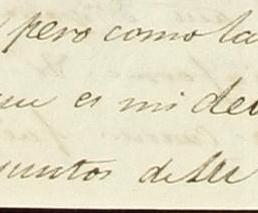 pero como la
que es mi de
puntos de su